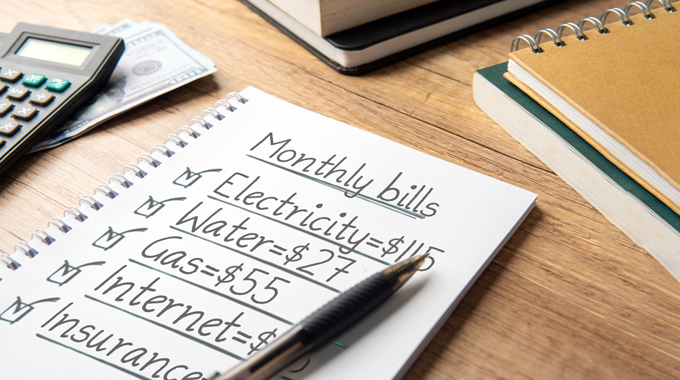 Monthly bills
Electricity=$115
Water=$27
Gas=$55
Internet=$
Insurance